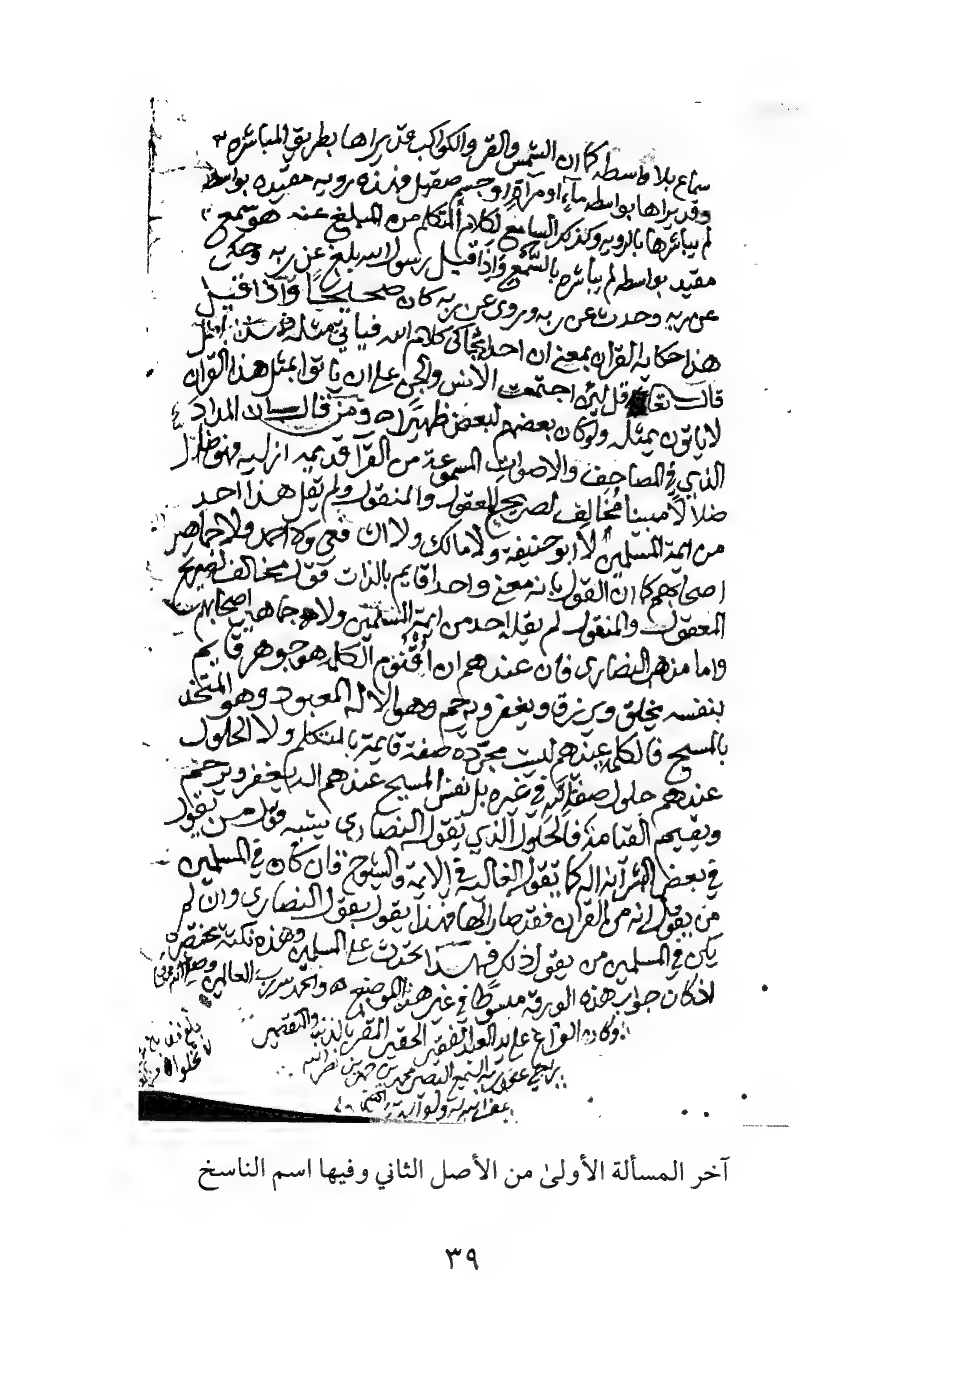 سماع بلا واسطه كما ان الشمس والقمر والكواكب قد يراها بطريق المباشره
وقد يراها بواسطه ماء او مرآة او جسم صقيل فهذه رويه مقيده بواسطه
لم يباشرها بالرويه وكذلك السامع لكلام المتكلم من المبلغ عنه هو سمع
مقيد بواسطه لم يباشره بالسمع واذا قيل رسول الله بلغ عن ربه وحكى
عن ربه وحدث عن ربه وروى عن ربه كان صحيحا واذا قيل
هذا حكايه القران بمعنى ان احدا يحاكى كلام الله فياتي بمثله فهذا باطل
قال تعالى قل لئن اجتمعت الانس والجن على ان ياتوا بمثل هذا القران
لا ياتون بمثله ولو كان بعضهم لبعض ظهيرا ومن قال ان المداد
الذي في المصاحف والاصوات المسموعة من القرا قديمه ازليه فهو ضال
ضلالا مبينا مخالف لصريح المعقول والمنقول ولم يقل هذا احد
من ايمة المسلمين لا ابو حنيفة ولا مالك ولا الشافعي ولا احمد ولا جماهير
اصحابهم كما ان القول بانه معنى واحد قايم بالذات قول مخالف لصريح
المعقول والمنقول لم يقله احد من ايمة المسلمين ولا جماهير اصحابهم
واما مذهب النصارى فان عندهم ان اقنوم الكلمه هو جوهر قايم
بنفسه يخلق ويرزق ويغفر ويرحم وهو الاله المعبود وهو المتحد
بالمسيح فالكلمه عندهم ليست مجرده صفة قايمة بالمتكلم ولا الحلول
عندهم حلول صفة في غيره بل نفس المسيح عندهم اله يغفر ويرحم
ويقيم القيامه فالحلول الذي يقوله النصارى يشبه قول من يقول
في بعض البشر انه اله كما يقوله الغالية في الايمة والشيوخ فان كان في المسلمين
من يقول انه من القران فقد صار الها فهذا يقول بقول النصارى وان لم
يكن في المسلمين من يقول ذلك فهذا على المسلمين وهذه نكتة مختصرة
اذ كان جواب هذه الورقه مبسوطا في غير هذا الموضع والحمد لله رب العالمين
وكان الفراغ على يد العبد الفقير الحقير المقر بالذنب والتقصير
راجي عفو ربه السميع البصير محمد بن
غفر الله له ولوالديه
آخر المسألة الأولىٰ من الأصل الثاني وفيها اسم الناسخ
٣٩